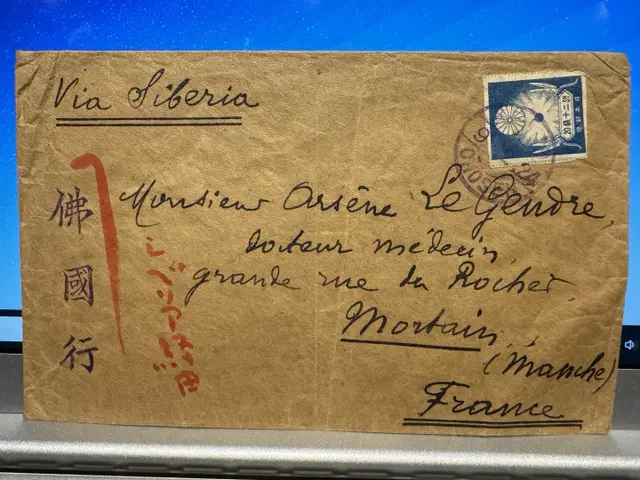 Via Siberia
佛國行
シベリヤ経由
Monsieur Arsène Le Gendre,
docteur médecin,
grande rue du Rocher,
Mortain,
(Manche)
France